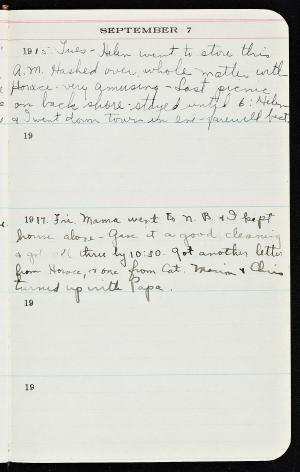 SEPTEMBER 7
1915 Tues - Helen went to store this
A.M. Hashed over whole matter with
Horace - very amusing - Last picnic
on back shore - stayed until 6: Helen
& I went down town in eve - farewell
19
1917. Fri. Mama went to N. B. & I kept
house alone - Gave it a good cleaning
& got all three by 10:30. Got another letter
from Horace, & one from Cat. Marion & Chris
turned up with Papa.
19
19